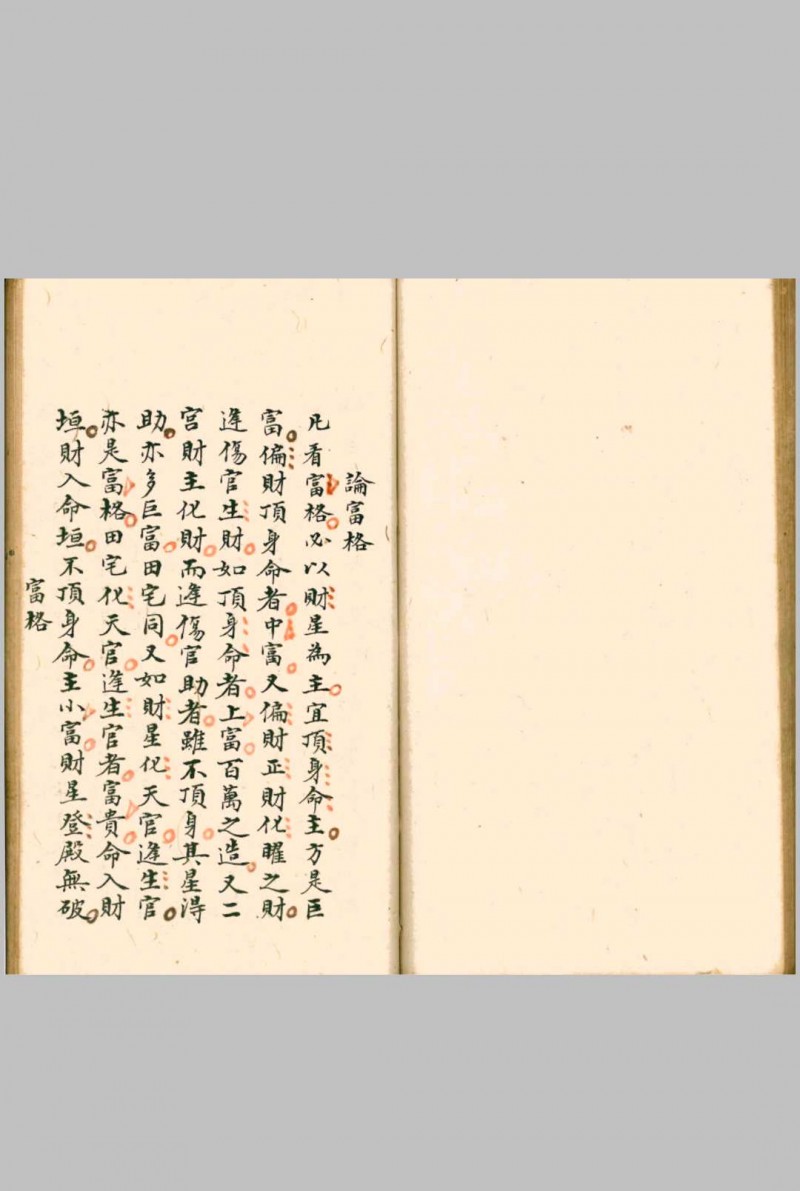 論富格
凡看富格必以財星為主宜頂身命主方是巨
富偏財頂身命者中富又偏財正財化曜之財
逢傷官生財如頂身命者上富百萬之造又二
宮財主化財而逢傷官助者雖不頂身其星得
助亦多巨富田宅同又如財星化天官逢生官
亦是富格田宅化天官逢生官者富貴命入財
垣財入命垣不頂身命主小富財星登殿無破
富格